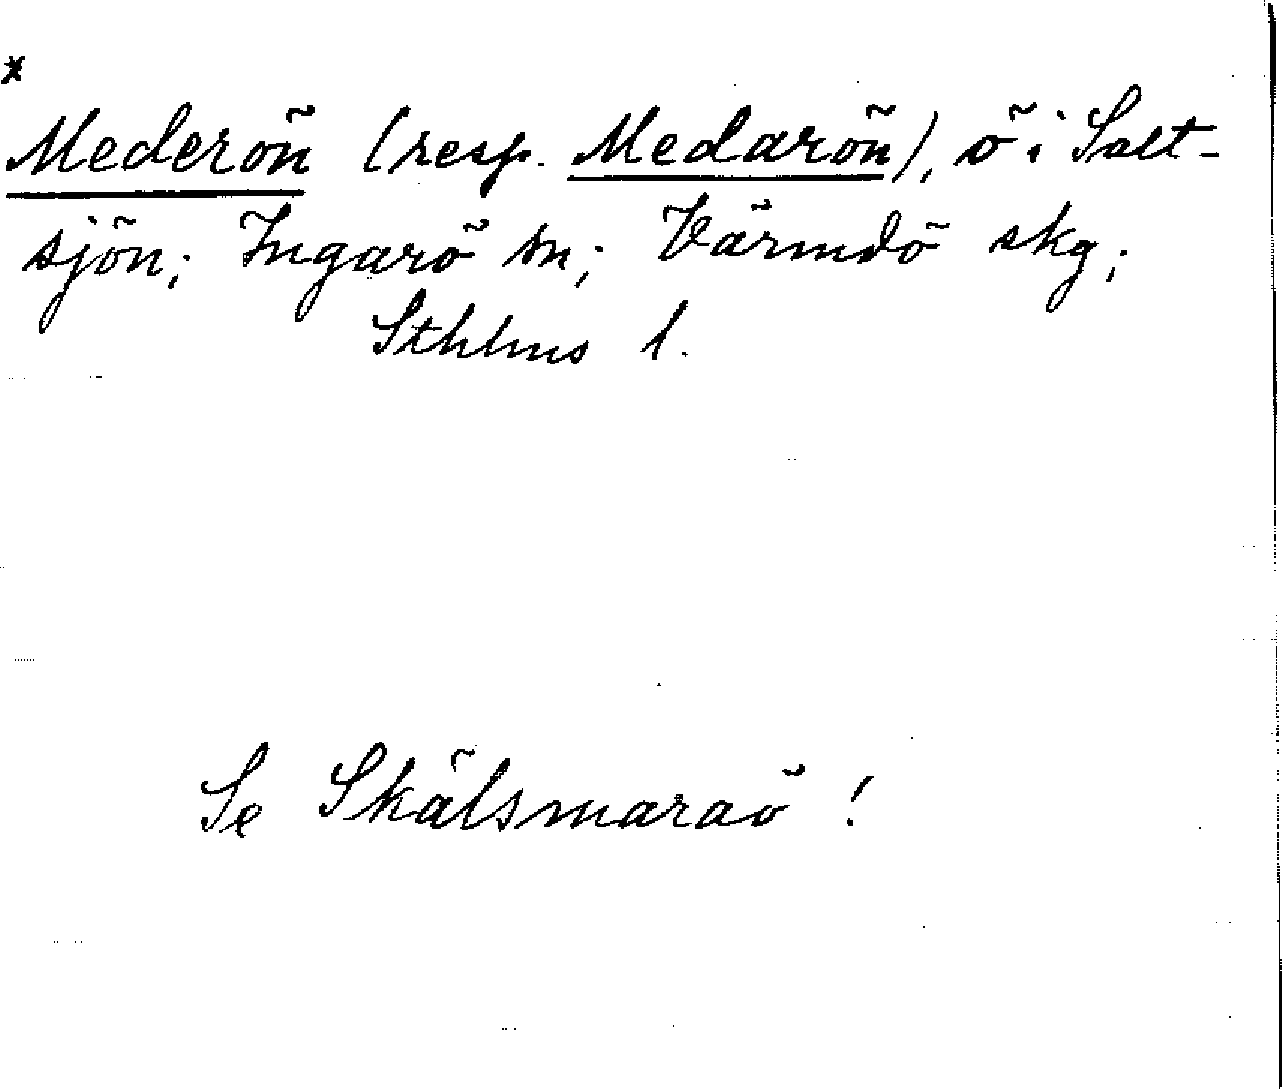 *
Mederön (resp. Medarön), ö i Salt-
sjön; Ingarö sn; Värmdö skg;
Sthlms l.
Se Skälsmaraö!